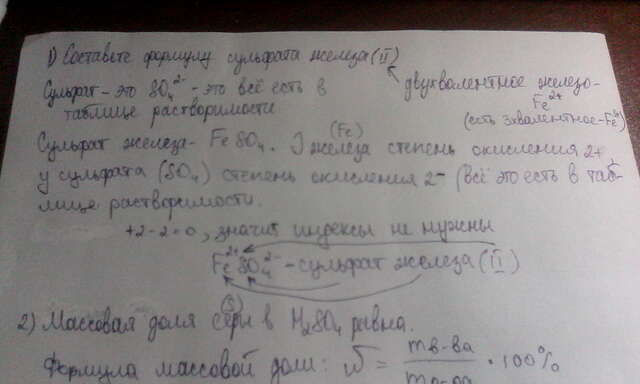 1) Составьте формулу сульфата железа (II)
Сульфат - это SO₄²⁻ - это всё есть в
таблице растворимости
двухвалентное железо -
Fe²⁺
(есть 3хвалентное - Fe³⁺)
Сульфат железа - FeSO₄. У железа (Fe) степень окисления 2+
у сульфата (SO₄) степень окисления 2⁻ (всё это есть в таб-
лице растворимости.
+2-2=0, значит индексы не нужны
Fe²⁺SO₄²⁻ - сульфат железа (II)
2) Массовая доля серы (S) в H₂SO₄ равна.
Формула массовой доли: ω = mв-ва · 100%